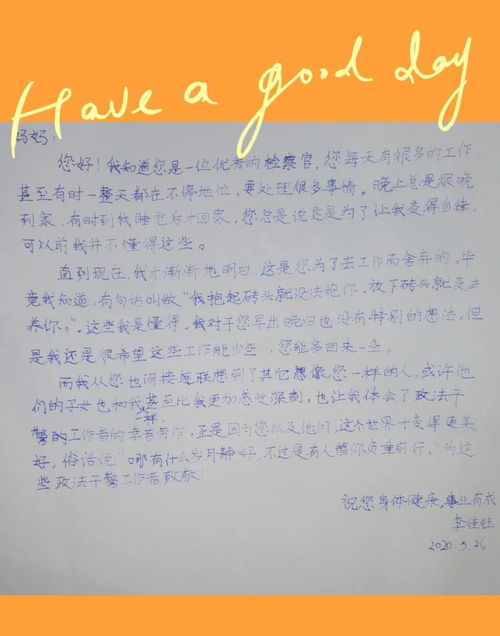 Have a good day
妈妈:
您好!我知道您是一位优秀的检察官,您每天有很多的工作,
甚至有时一整天都在不停地忙,要处理很多事情。晚上总是很晚
到家,有时到我睡觉后才回家,您总是说您是为了让我变得自律,
可以前我并不懂得这些。
直到现在,我才渐渐地明白,这是您为了去工作而舍弃的。毕
竟我知道,有句话叫做“我抱起砖头就没法抱你,放下砖头就没法
养你。”,这些我是懂得,我对于您早出晚归也没有特别的想法,但
是我还是很希望这些工作能少些,您能多回来一些。
而我从您也间接联想到了其它想像您一样的人,或许他
们的子女也和我一样甚至比我更加感受深刻,也让我体会了政法干
警的工作者的辛苦劳作,正是因为您以及他们,这个世界才变得更美
好,俗话说“哪有什么岁月静好,不过是有人替你负重前行。”为这
些政法干警工作者致敬!
祝您身体健康,事业有成
李佳钰
2020.5.26